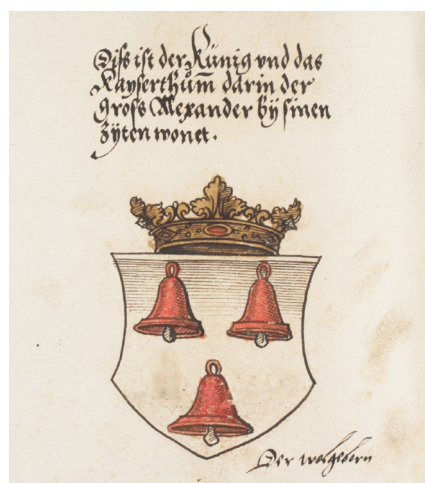 Diss ist der Künig vnd das
Kayserthům̄ darin der
gross Allexander bÿ sinen
zÿten wonet.
Der wolgeborn